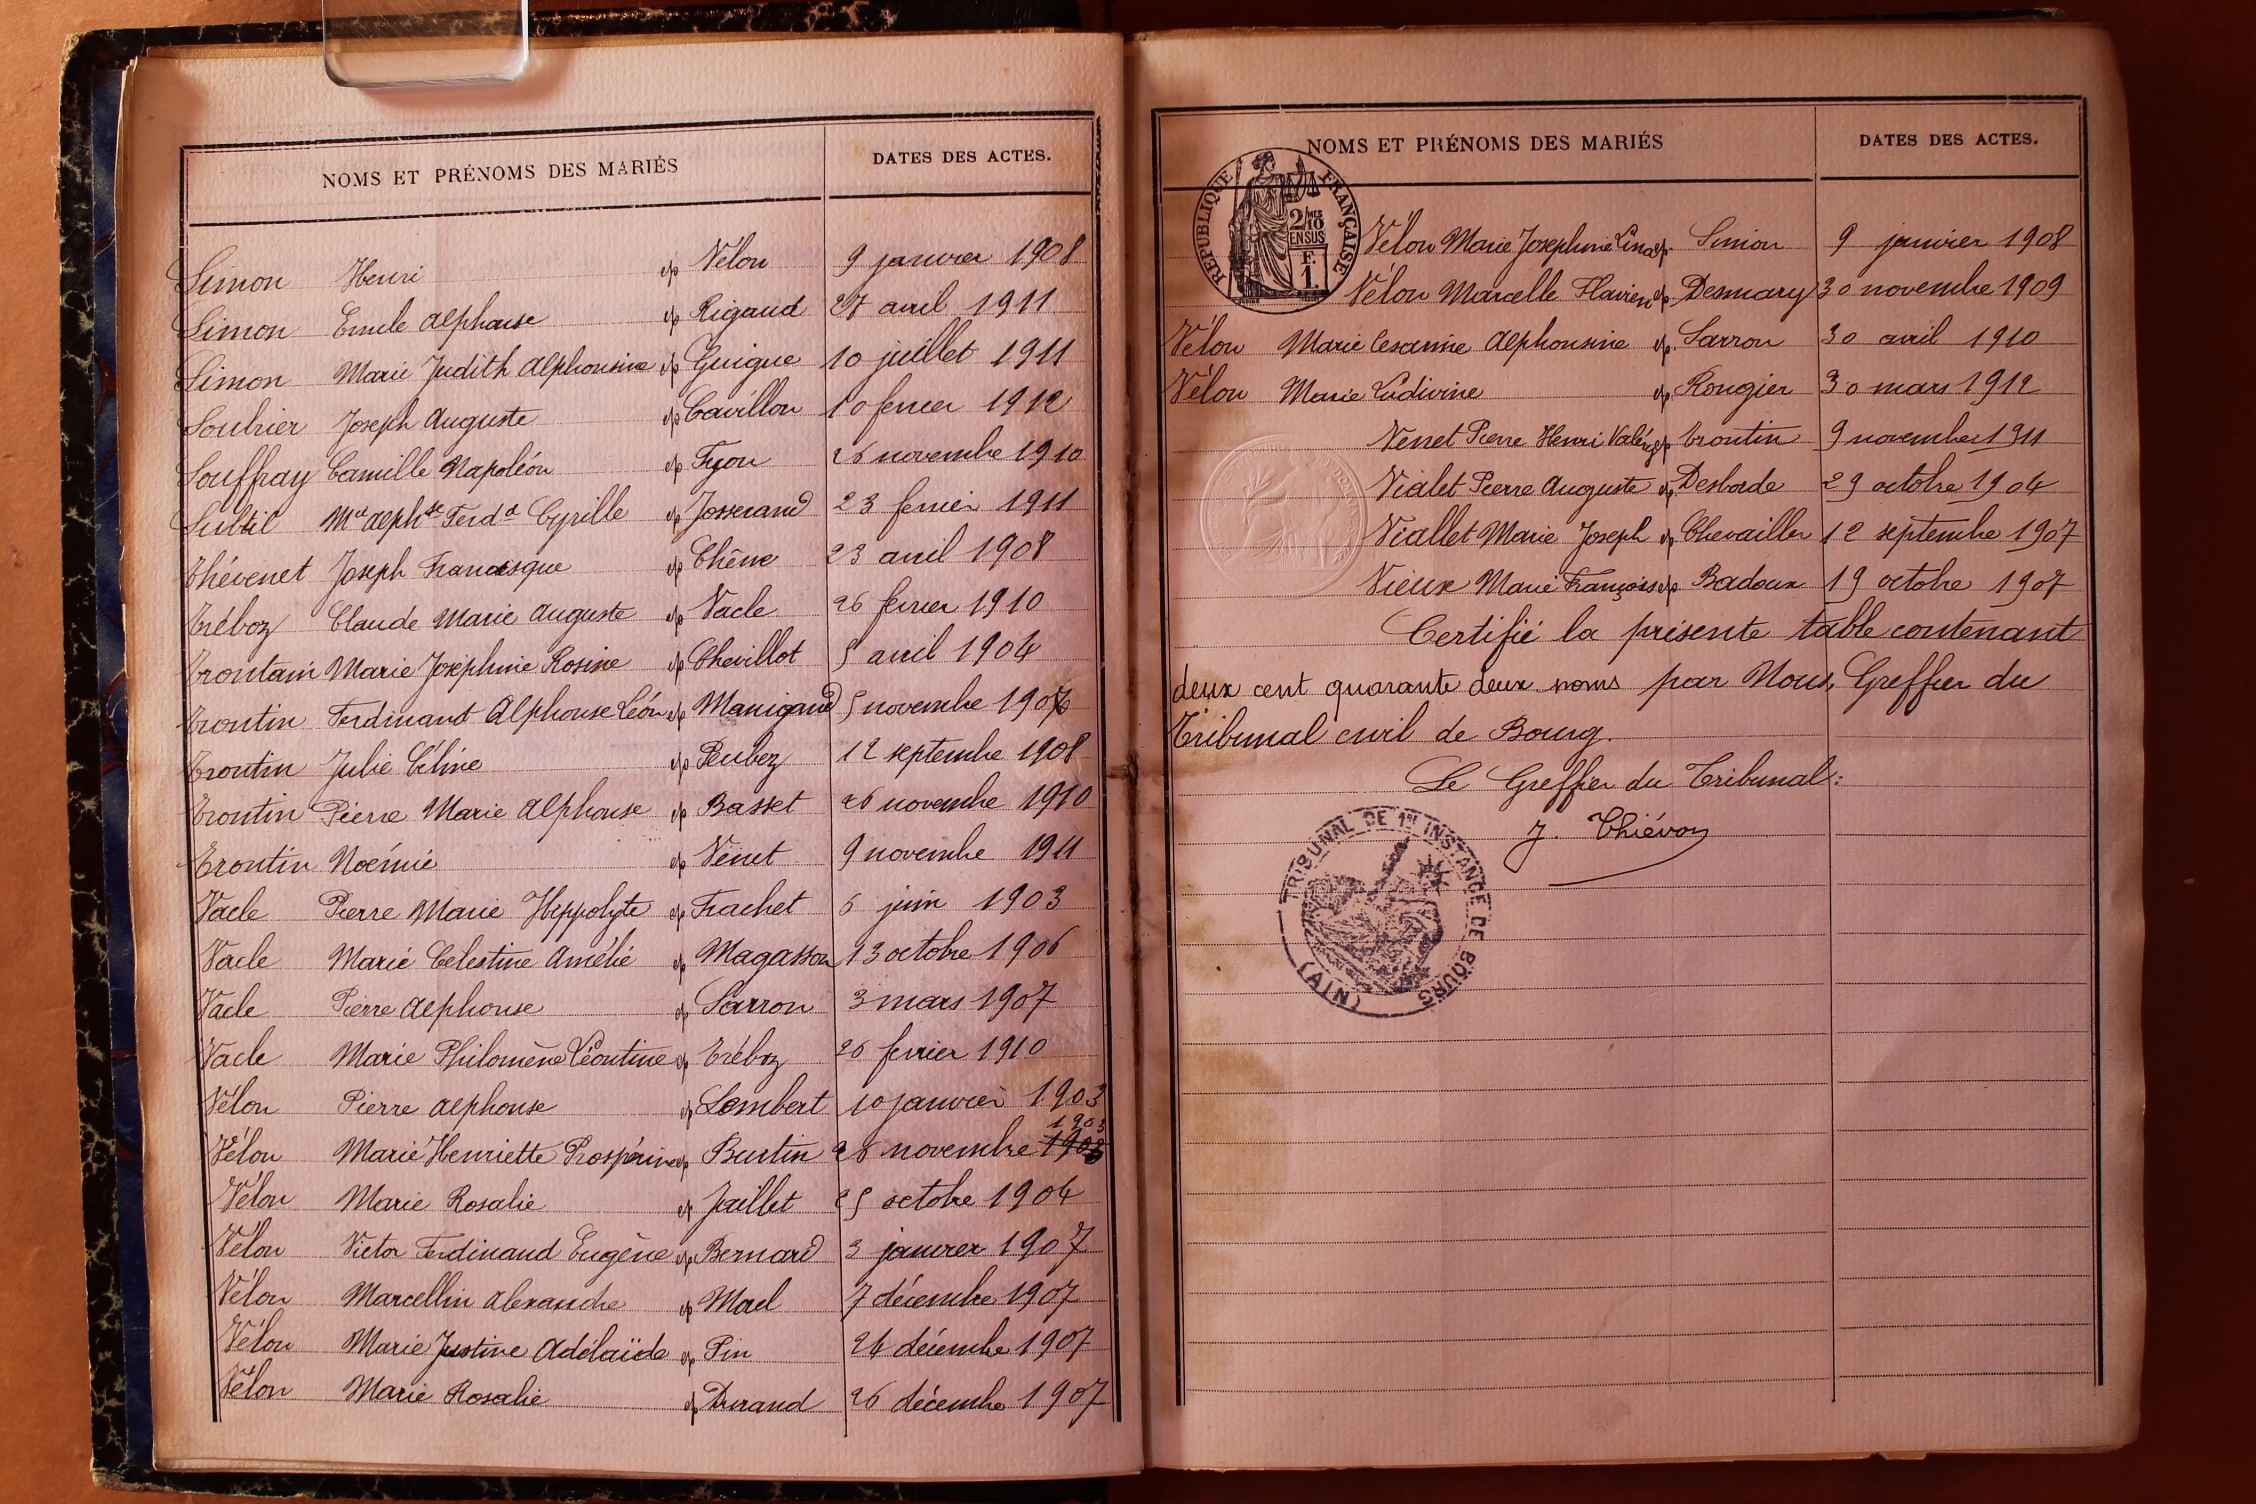 NOMS ET PRÉNOMS DES MARIÉS DATES DES ACTES.
Simon Henri ép Vélon 9 janvier 1908
Simon Emile Alphonse ép Rigaud 27 avril 1911
Simon Marie Judith Alphonsine ép Guigue 10 juillet 1911
Soubrier Joseph Auguste ép Cavillon 10 fevrier 1912
Souffray Camille Napoléon ép Fyon 26 novembre 1910
Subtil Mie Alphse Ferdd Cyrille ép Josserand 23 fevrier 1911
Thévenet Joseph Francisque ép Chêne 23 avril 1908
Tréboz Claude Marie Auguste ép Vacle 26 fevrier 1910
Trontain Marie Joséphine Rosine ép Chevillot 5 avril 1904
Trontin Ferdinand Alphonse Léon ép Manigand 5 novembre 1906
Trontin Julie Céline ép Peubez 12 septembre 1908
Trontin Pierre Marie Alphonse ép Basset 26 novembre 1910
Trontin Noémie ép Venet 9 novembre 1911
Vacle Pierre Marie Hippolyte ép Frachet 6 juin 1903
Vacle Marie Célestine Amélie ép Magasson 13 octobre 1906
Vacle Pierre Alphonse ép Sarron 3 mars 1907
Vacle Marie Philomène Léontine ép Tréboz 26 fevrier 1910
Vélon Pierre Alphonse ép Lombert 10 janvier 1903
1903
Vélon Marie Henriette Prospérine ép Burtin 26 novembre
Vélon Marie Rosalie ép Jaillet 25 octobre 1904
Vélon Victor Ferdinand Eugène ép Bernard 3 janvier 1907
Vélon Marcellin Alexandre ép Morel 7 décembre 1907
Vélon Marie Justine Adélaïde ép Pin 24 décembre 1907
Vélon Marie Rosalie ép Durand 26 décembre 1907
NOMS ET PRÉNOMS DES MARIÉS DATES DES ACTES.
RÉPUBLIQUE FRANÇAISE
2/10 EN SUS
F. 1.
Vélon Marie Josephine Lina ép Simon 9 janvier 1908
Vélon Marcelle Flavien ép Desmary 30 novembre 1909
Vélon Marie Césarine Alphonsine ép Sarron 30 avril 1910
Vélon Marie Ludivine ép Rougier 30 mars 1912
Venet Pierre Henri Valéry ép Trontin 9 novembre 1911
Vialet Pierre Auguste ép Desborde 29 octobre 1904
Viallet Marie Joseph ép Chevailler 12 septembre 1907
Vieux Marie François ép Badoux 19 octobre 1907
Certifié la présente table contenant
deux cent quarante deux noms par Nous, Greffier du
Tribunal civil de Bourg.
Le Greffier du Tribunal:
J. Thiévoz
TRIBUNAL DE 1re INSTANCE DE BOURG
(AIN)